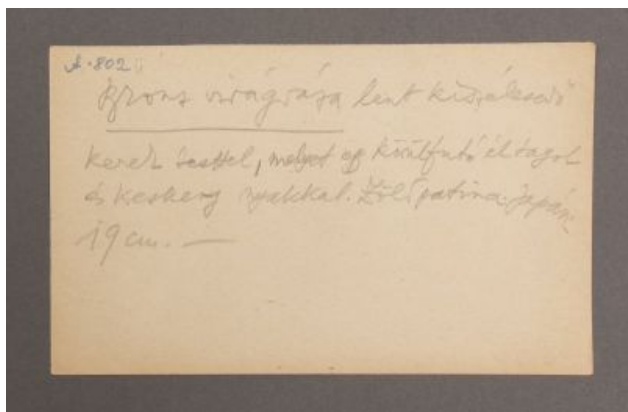 A.802
Bronz virágváza lent kiszélesedő
kerek testtel, melyet egy körülfutó él tagol
és keskeny nyakkal. Zöld patina. Japán.
19 cm. —